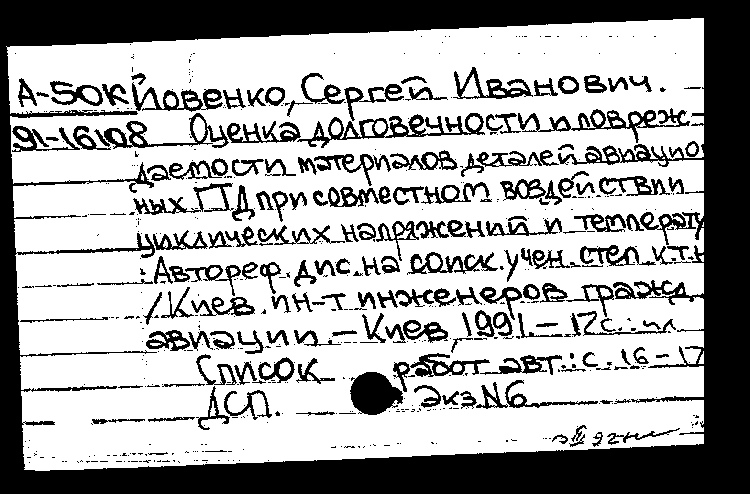 А-50К Йовенко, Сергей Иванович.
91-16108 Оценка долговечности и повреж-
даемости материалов деталей авиацио
ных ГТД при совместном воздействии
циклических напряжений и температу
: Автореф. дис. на соиск. учен. степ. к.т.н
/ Киев. ин-т инженеров гражд.
авиации. - Киев, 1991. - 17 с.: ил
Список работ авт.: с. 16-17
ДСП. Экз. N6